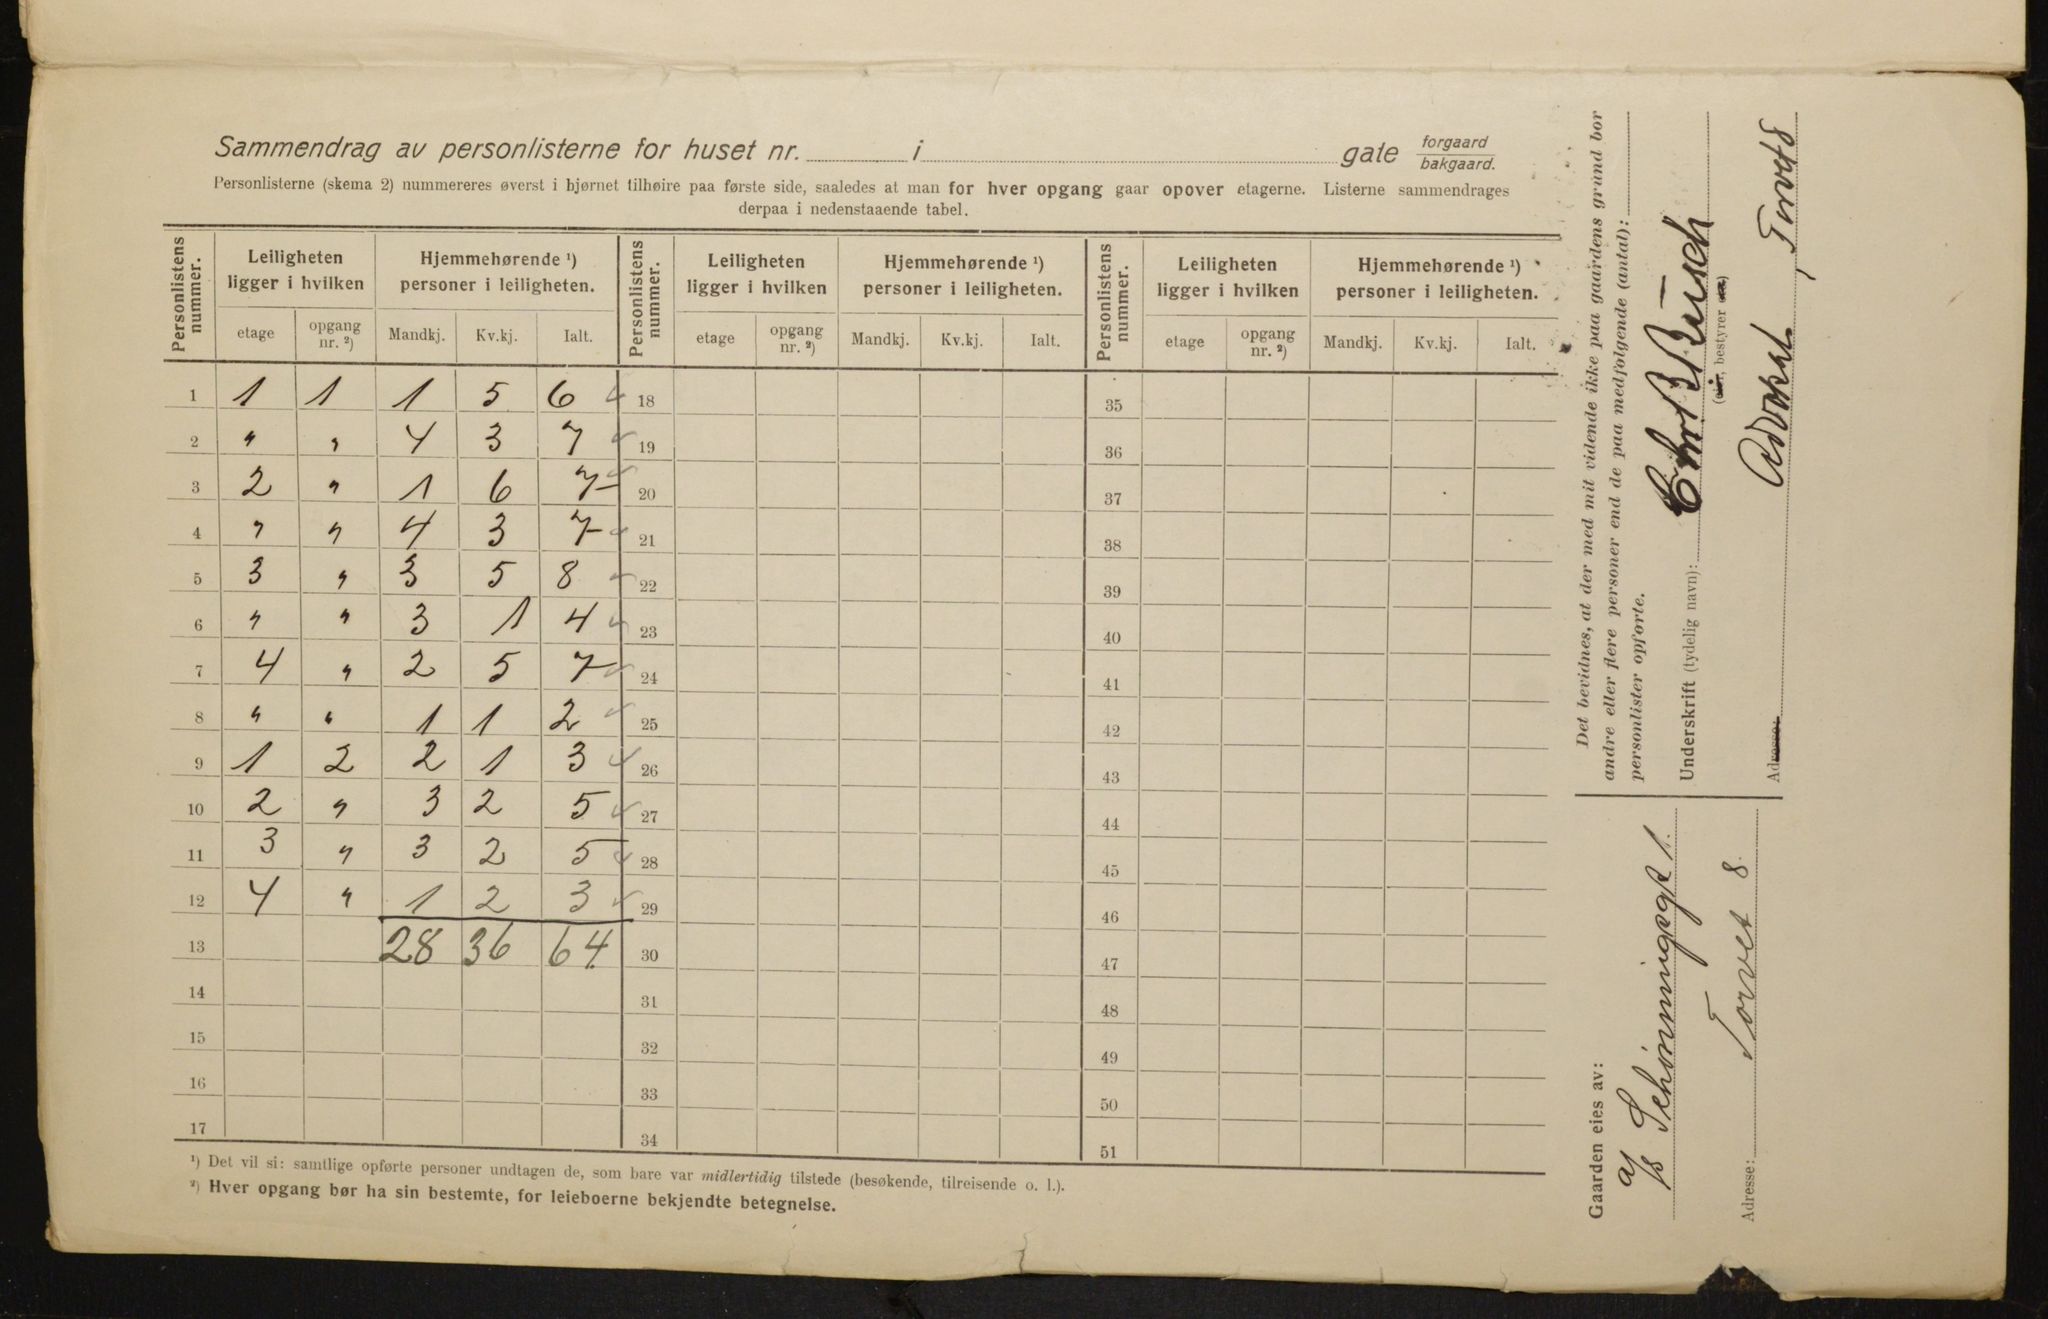 Sammendrag av personlisterne for huset nr. i gate forgaard bakgaard.
Personlisterne (skema 2) nummereres øverst i hjørnet tilhøire paa første side, saaledes at man for hver opgang gaar opover etagerne. Listerne sammendrages
derpaa i nedenstaaende tabel.
Personlistens nummer. Leiligheten ligger i hvilken Hjemmehørende ¹) personer i leiligheten. Personlistens nummer. Leiligheten ligger i hvilken Hjemmehørende ¹) personer i leiligheten. Personlistens nummer. Leiligheten ligger i hvilken Hjemmehørende ¹) personer i leiligheten.
etage opgang nr. ²) Mandkj. Kv.kj. Ialt. etage opgang nr. ²) Mandkj. Kv.kj. Ialt. etage opgang nr. ²) Mandkj. Kv.kj. Ialt.
1 1 1 1 5 6 18 35
2 " " 4 3 7 19 36
3 2 " 1 6 7 20 37
4 " " 4 3 7 21 38
5 3 " 3 5 8 22 39
6 " " 3 1 4 23 40
7 4 " 2 5 7 24 41
8 " " 1 1 2 25 42
9 1 2 2 1 3 26 43
10 2 " 3 2 5 27 44
11 3 " 3 2 5 28 45
12 4 " 1 2 3 29 46
13 28 36 64 30 47
14 31 48
15 32 49
16 33 50
17 34 51
¹) Det vil si: samtlige opførte personer undtagen de, som bare var midlertidig tilstede (besøkende, tilreisende o. l.).
²) Hver opgang bør ha sin bestemte, for leieboerne bekjendte betegnelse.
Det bevidnes, at der med mit vidende ikke paa gaardens grund bor
andre eller flere personer end de paa medfølgende (antal):
personlister opførte.
Underskrift (tydelig navn): Chr. B. Busch
(eier, bestyrer
Advokat, Torvet 8
Adresse:
Gaarden eies av:
A/S Schønningsgt 1.
Adresse: Torvet 8.